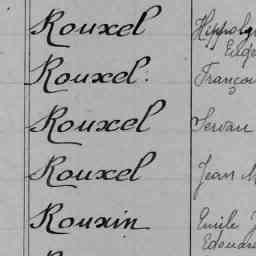 Rouxel Hippoly
Euge
Rouxel. Franço
Rouxel Servan
Rouxel Jean M
Rouxin Emile J
Edouar